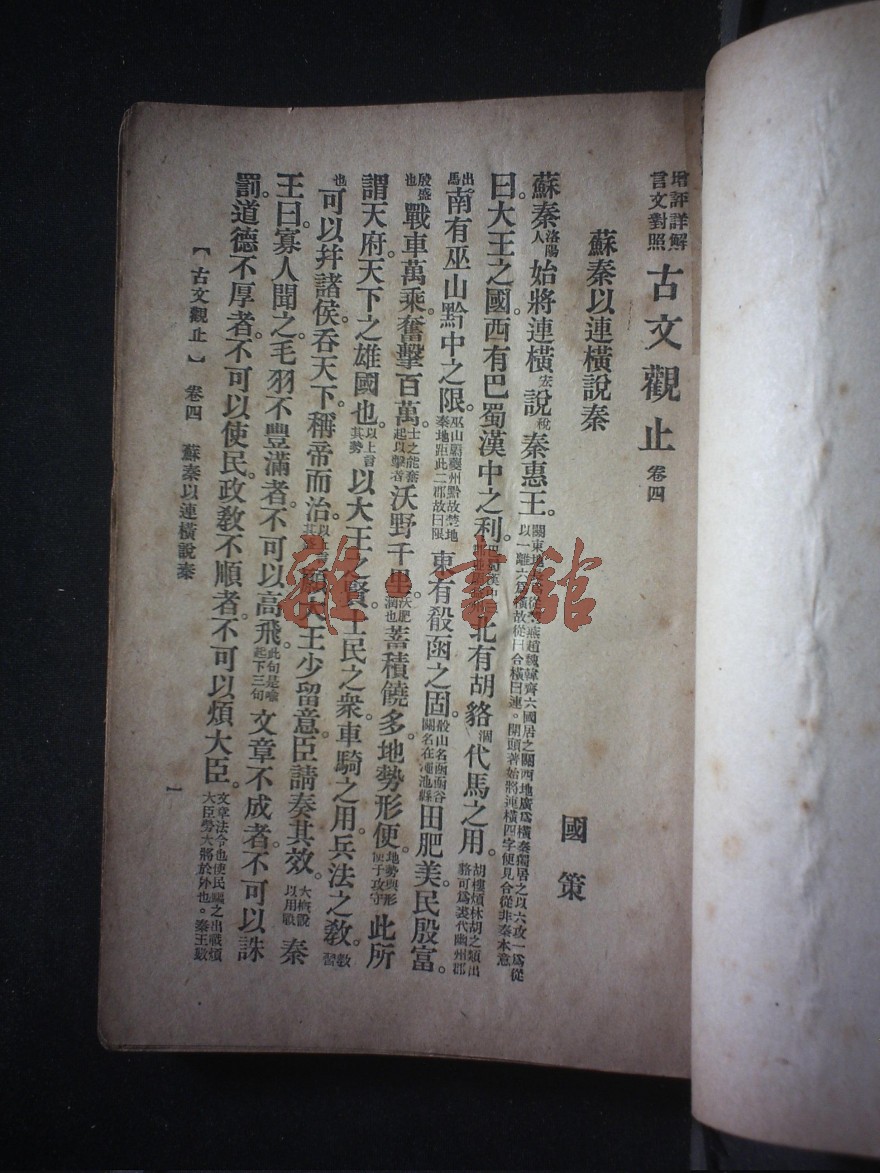 增評詳解
言文對照
古文觀止 卷四
蘇秦以連橫說秦 國策
蘇秦洛陽人始將連橫宏說稅秦惠王。關東地長爲從楚燕趙魏韓齊六國居之關西地廣爲橫秦獨居之以六攻一爲從以一離六爲橫故從曰合橫曰連。開頭著始將連橫四字便見合從非秦本意
曰。大王之國。西有巴蜀漢中之利。北有胡貉涸代馬之用。胡樓煩林胡之類出貉可爲裘代幽州郡
出馬南有巫山黔中之限。巫山屬夔州黔故楚地秦地距此二郡故曰限東有殽函之固。殽山名函函谷關名在澠池縣田肥美。民殷富。
殷盛也戰車萬乘。奮擊百萬。士之能奮起以擊者沃野千里。沃肥潤也蓄積饒多。地勢形便。地勢與形便于攻守此所
謂天府。天下之雄國也。以上言其勢以大王之賢。士民之衆。車騎之用。兵法之教。教習
也可以幷諸侯。吞天下。稱帝而治。以上言其願大王少留意。臣請奏其效。大概說以用戰秦
王曰。寡人聞之。毛羽不豐滿者。不可以高飛。此句是喻起下三句文章不成者。不可以誅
罰。道德不厚者。不可以使民。政教不順者。不可以煩大臣。文章法令也使民驅之出戰煩大臣勞大將於外也。秦王
【古文觀止】 卷四 蘇秦以連橫說秦 一
雜·書館